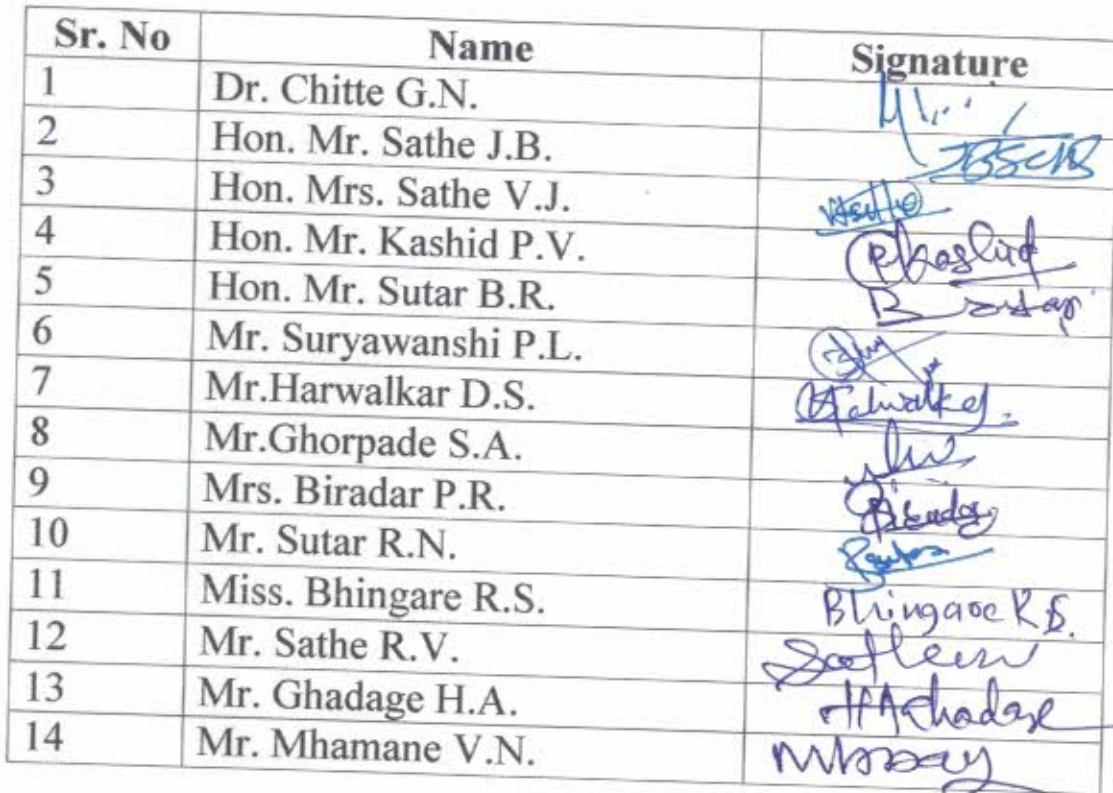 Sr. No Name Signature
1 Dr. Chitte G.N.
2 Hon. Mr. Sathe J.B.
3 Hon. Mrs. Sathe V.J.
4 Hon. Mr. Kashid P.V. PKashid
5 Hon. Mr. Sutar B.R.
6 Mr. Suryawanshi P.L.
7 Mr.Harwalkar D.S.
8 Mr.Ghorpade S.A.
9 Mrs. Biradar P.R.
10 Mr. Sutar R.N.
11 Miss. Bhingare R.S. Bhingare R.S.
12 Mr. Sathe R.V.
13 Mr. Ghadage H.A. HAGhadage
14 Mr. Mhamane V.N.